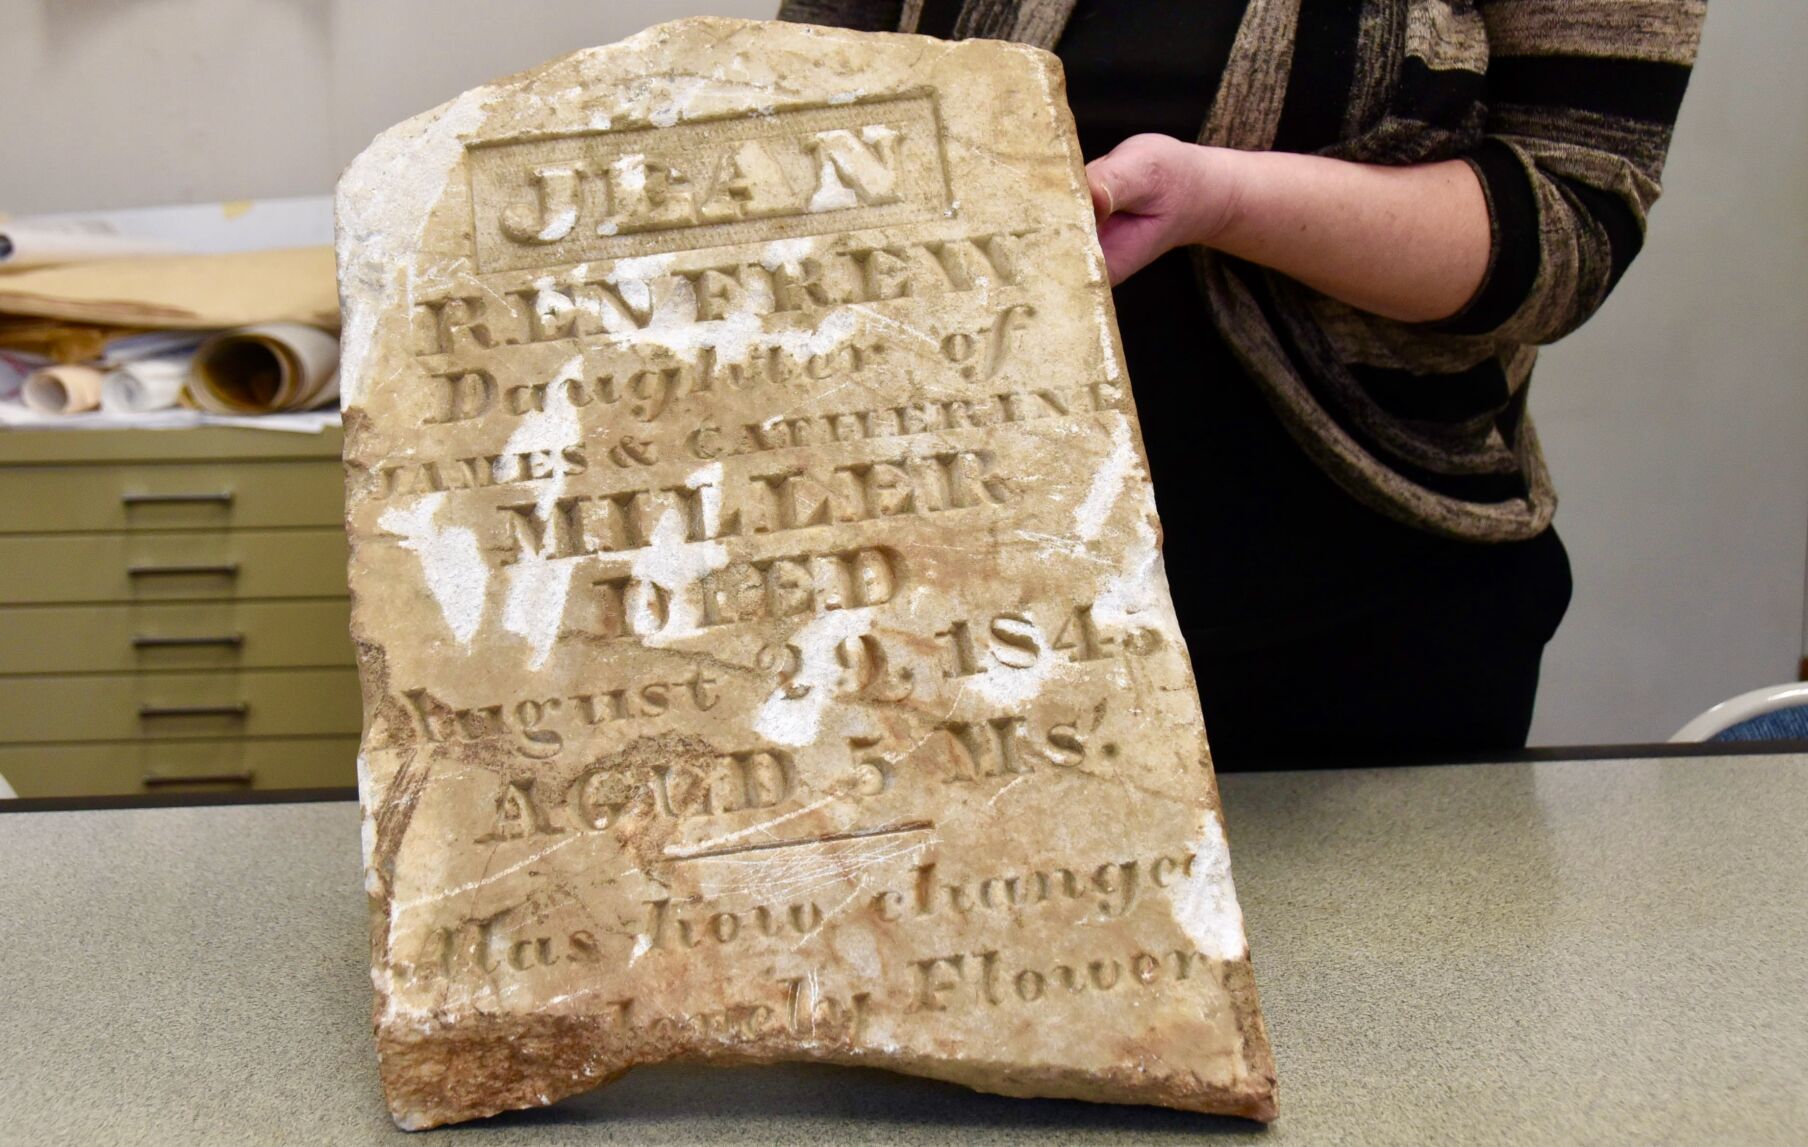 JEAN
RENFREW
Daughter of
JAMES & CATHERINE
MILLER
DIED
August 22, 1845
AGED 5 Ms.
Alas how changed
lovely Flower